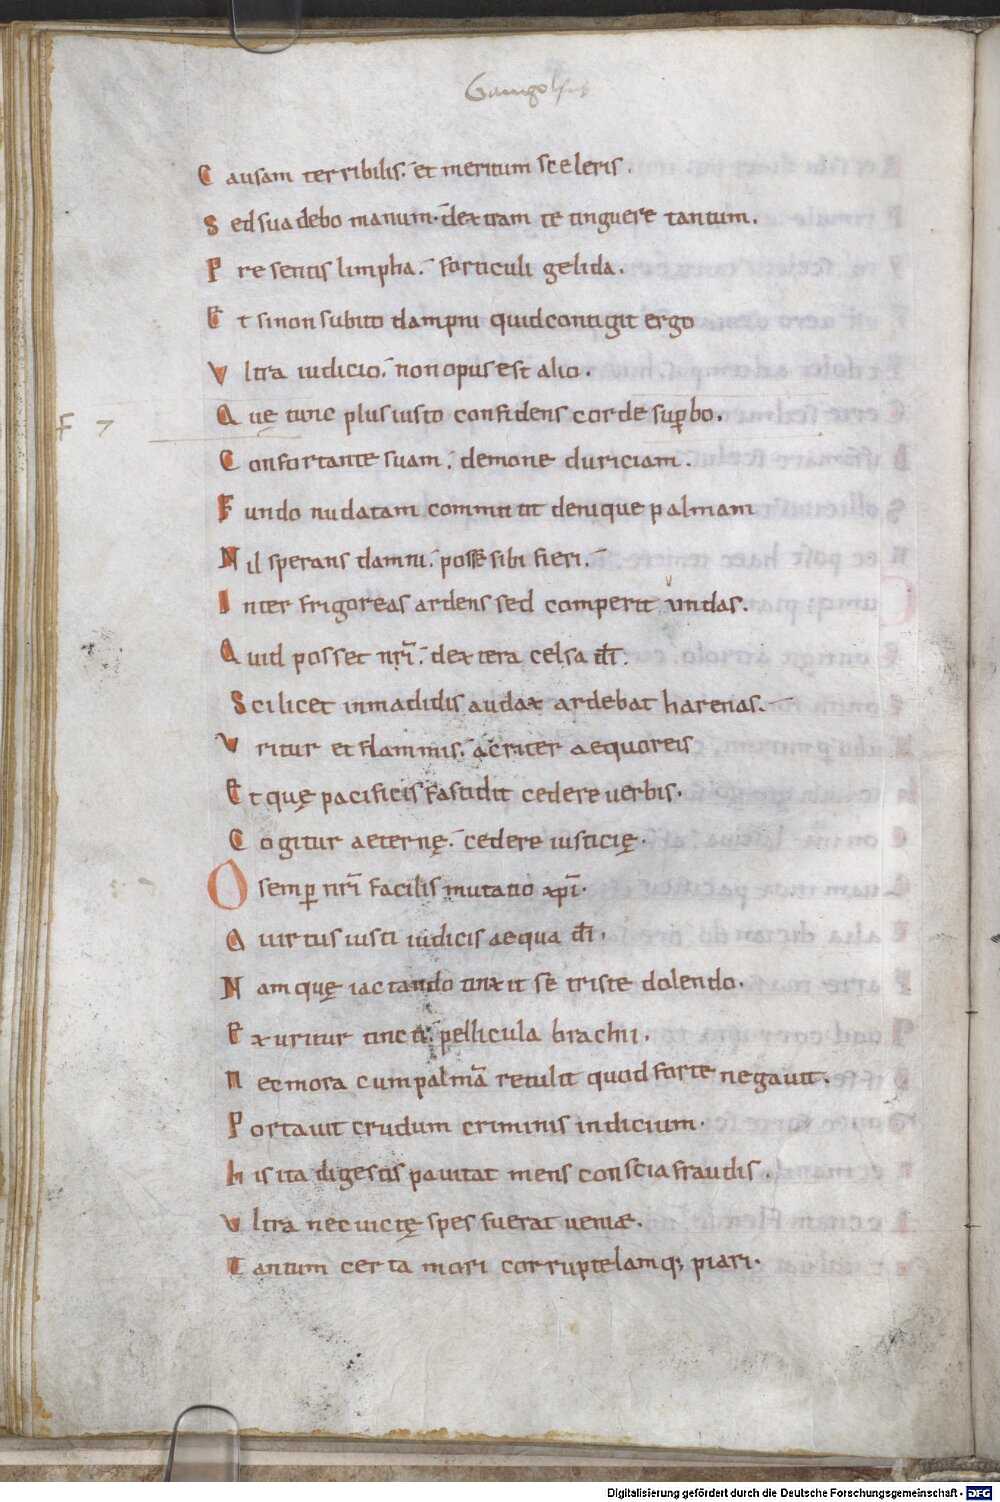 Gangolfus
Causam terribilis. et meritum sceleris.
Sed suadebo manum. dextram te tinguere tantum.
Presentis limpha. forticuli gelida.
Et si non subito dampni quid contigit ergo
Vltra iudicio. non opus est alio.
F 7
Quę tunc plus iusto confidens corde suꝑbo.
Confortante suam. demone duriciam.
Fundo nudatam committit denique palmam
Nil sperans damni. posse sibi fieri.
Inter frigoreas ardens sed comperit undas.
Quid posset nr̄i. dextera celsa dī.
Scilicet in madidis audax ardebat harenas.
Vritur et flammis. acriter aequoreis
Et quę pacificis fastidit cedere uerbis.
Cogitur aeternę. cedere iusticię.
O semꝑ nr̄i facilis mutatio xp̄i.
A uirtus iusti iudicis aequa dī.
Nam quę iactando tinxit se triste dolendo.
Exuritur tincti. pellicula brachii.
Nec mora cum palmā retulit quod forte negauit.
Portauit crudum criminis indicium.
His ita digestis pauitat mens conscia fraudis.
Vltra nec uictę spes fuerat ueniæ.
Tantum certa mori corruptelamq; piari.
Digitalisierung gefördert durch die Deutsche Forschungsgemeinschaft - DFG